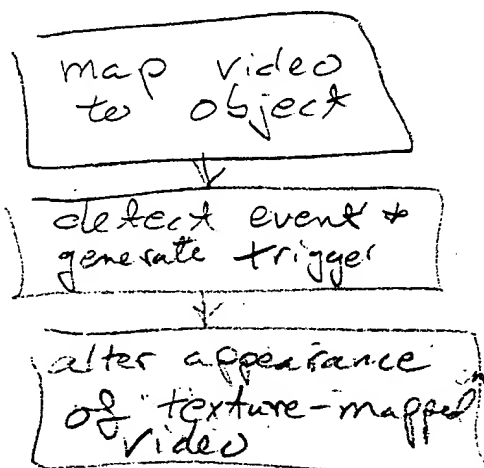 map video
to object
detect event &
generate trigger
alter appearance
of texture-mapped
video